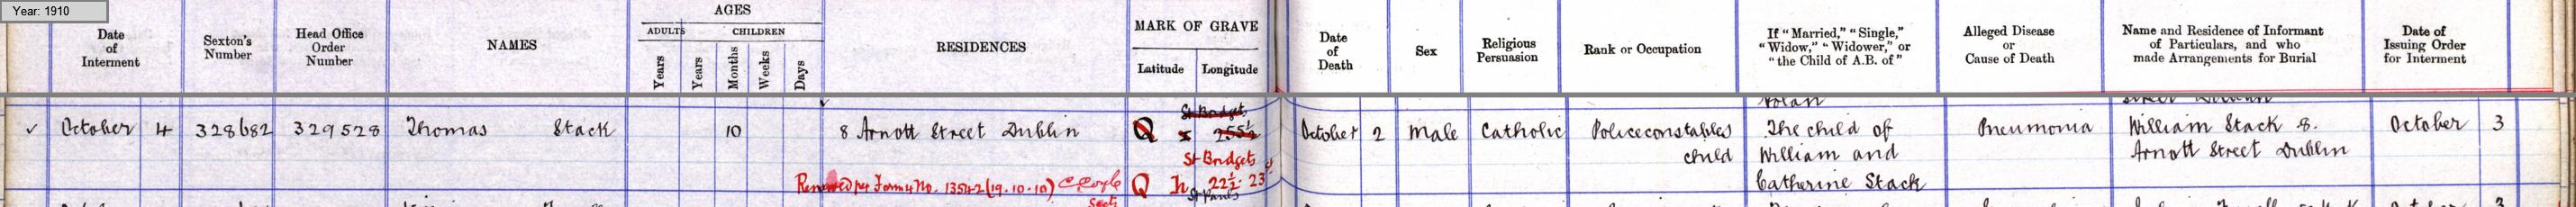 Year: 1910
Date of Interment
Sexton's Number
Head Office Order Number
NAMES
AGES
ADULTS
CHILDREN
Years
Years
Months
Weeks
Days
RESIDENCES
MARK OF GRAVE
Latitude
Longitude
Date of Death
Sex
Religious Persuasion
Rank or Occupation
If "Married," "Single," "Widow," "Widower," or "the Child of A.B. of"
Alleged Disease or Cause of Death
Name and Residence of Informant of Particulars, and who made Arrangements for Burial
Date of Issuing Order for Interment
Nolan
St Bridgets
✓ October 4 328682 329528 Thomas Stack 10 8 Arnott Street Dublin Q 255½ October 2 Male Catholic Police constables The child of Pneumonia William Stack 8. October 3
child William and Arnott Street Dublin
St Bridgets
Removed per Form 4 No. 13542 (19.10.10) C Coyle Q h 22½ 23 Catherine Stack
Sect
St Pauls